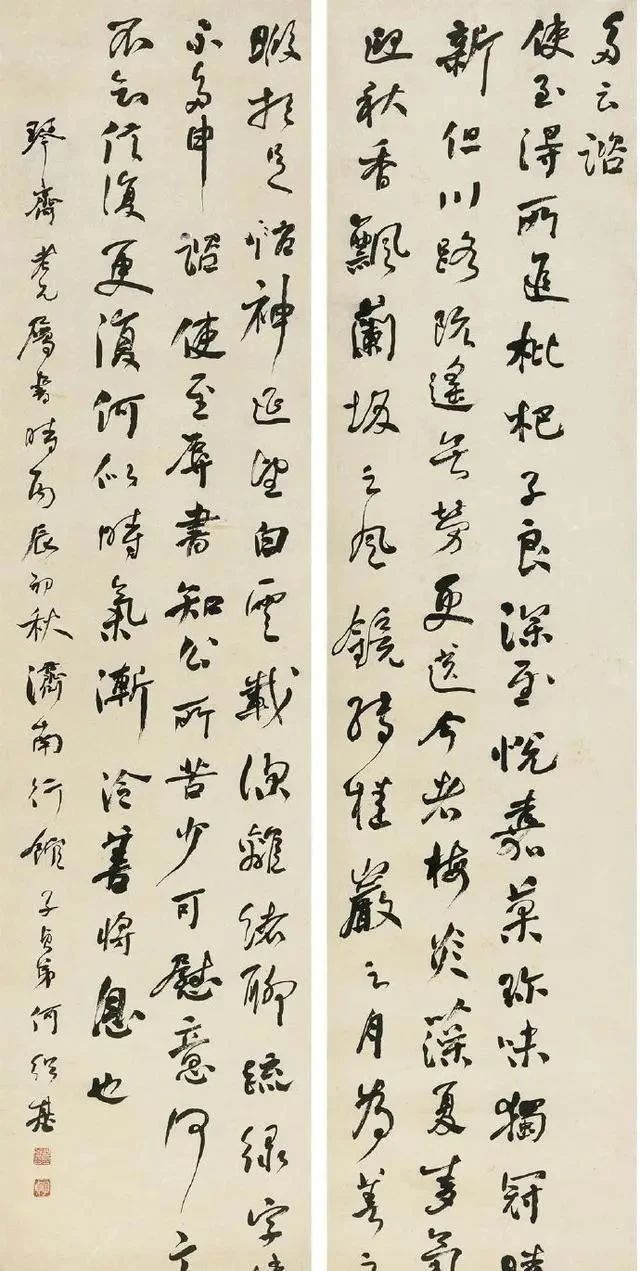 多云谘
使至得所進枇杷子良深至悅嘉菓珎味獨冠時
新但川路既遙無勞更送今者梅炎藻夏麥氣
迎秋香飄蘭坂之風鏡轉桂巖之月為善之
暇想足怡神延望白雲載深離緒聊疏綠字情
不多申 谘使至辱書知公所苦少可慰意何言
不知信復更復何似時氣漸冷善將息也
琴齋老兄屬書時丙辰初秋濟南行館子貞弟何紹基